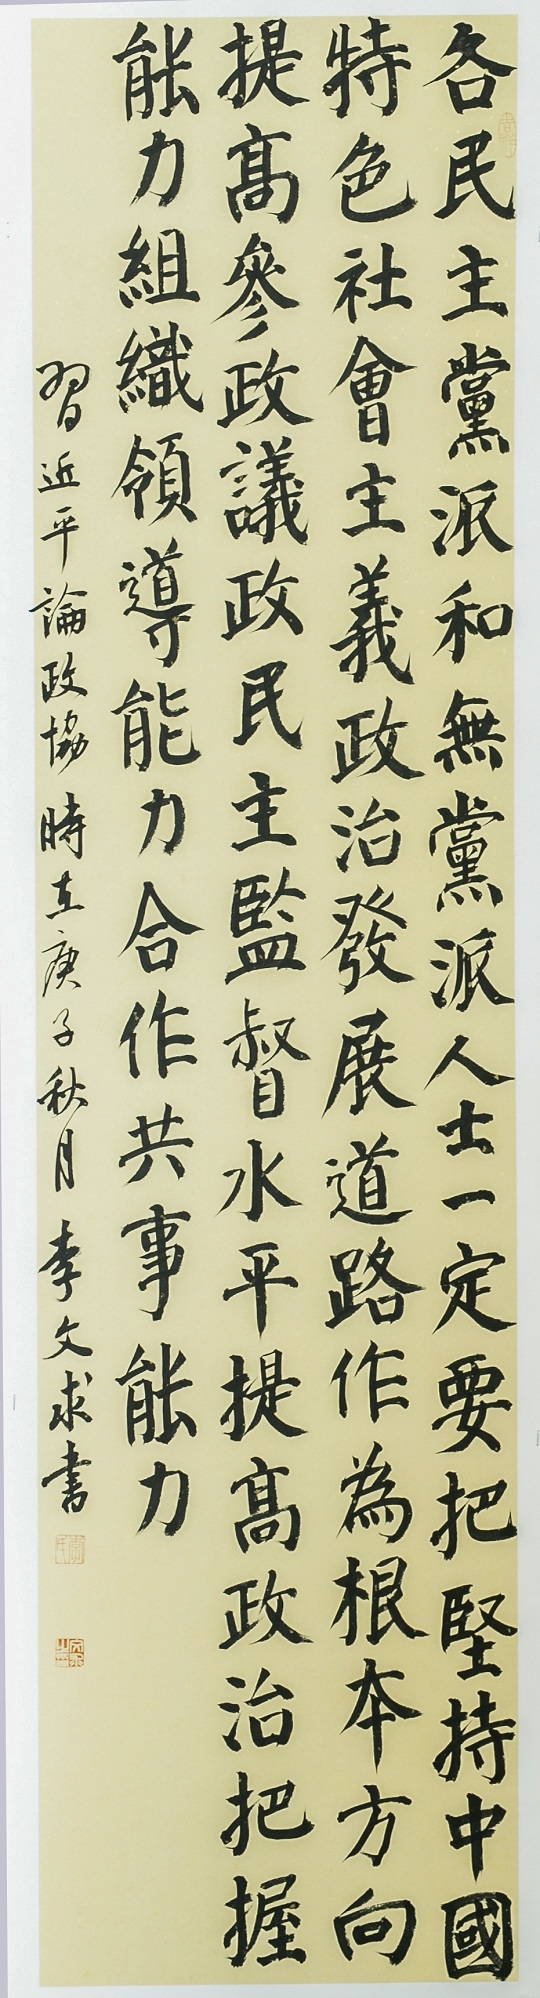 各民主黨派和無黨派人士一定要把堅持中國
特色社會主義政治發展道路作為根本方向
提高參政議政民主監督水平提高政治把握
能力組織領導能力合作共事能力
習近平論政協時在庚子秋月李文求書